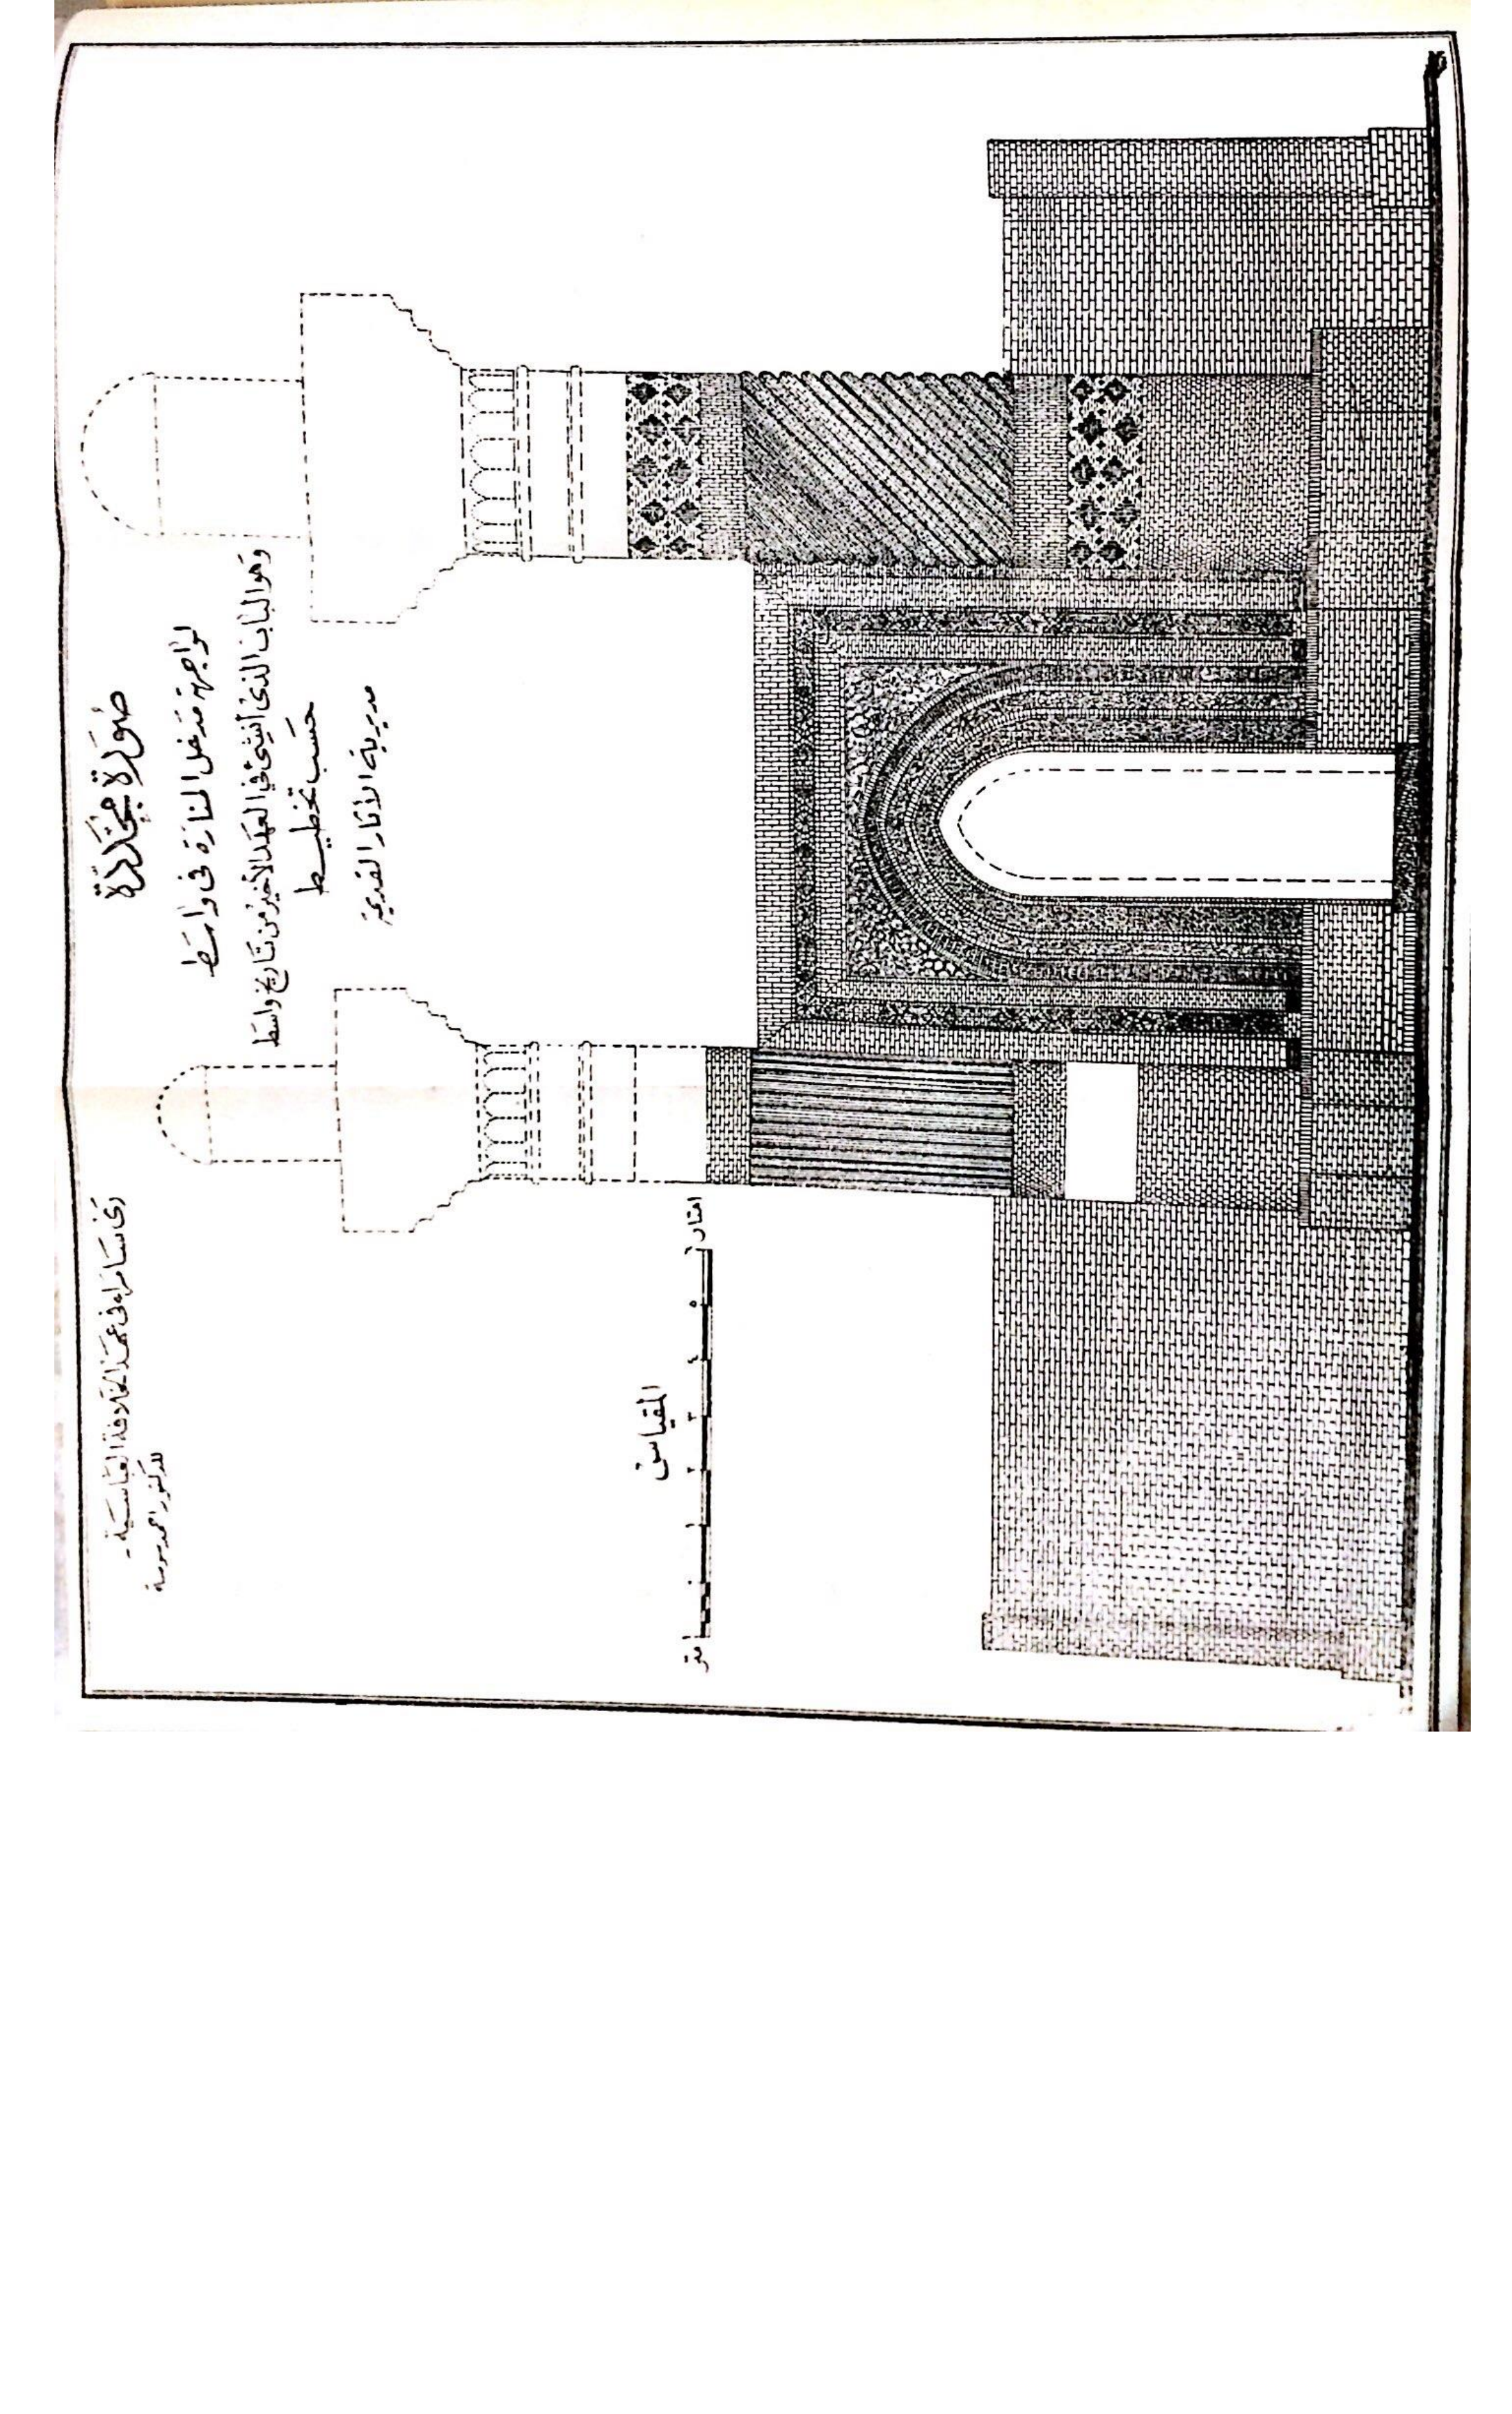 ري سامراء في عهد الخلافة العباسية -
للدكتور احمد سوسة
صورة مجددة
لواجهة مدخل المنارة في واسط
وهو الباب الذي انشئ في العهد الأخير من تاريخ واسط
حسب تخطيط
مديرية الآثار القديمة
المقياس
متر ١ ٠ ١ ٢ ٣ ٤ ٥ ٦ امتار